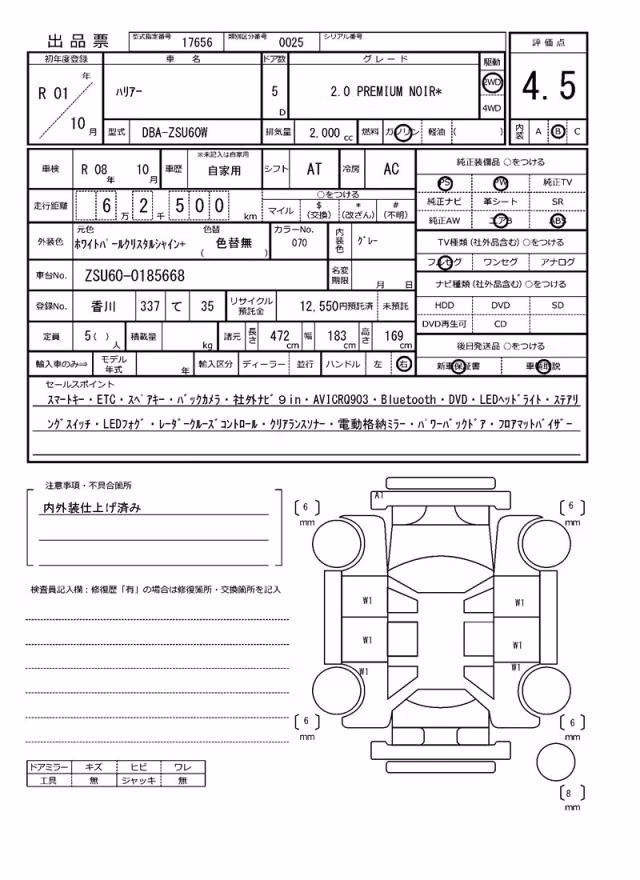 出品票 型式指定番号 17656 類別区分番号 0025 シリアル番号
初年度登録 車 名 ドア数 グレード 駆動 評価点
R 01 年 10 月 ハリアー 5 D 2.0 PREMIUM NOIR* 2WD 4WD 4.5
型式 DBA-ZSU60W 排気量 2,000 cc 燃料 ガソリン 軽油 ( ) 内装 A B C
車検 R 08 年 10 月 車歴 ※未記入は自家用 自家用 シフト AT 冷房 AC
走行距離 6 万 2 千 5 0 0 km ○をつける マイル $ (交換) * (改ざん) # (不明)
外装色 元色 ホワイトパールクリスタルシャイン+ 色替 ( 色替無 ) カラーNo. 070 内装色 グレー
車台No. ZSU60-0185668 名変期限 月 日
登録No. 香川 337 て 35 リサイクル預託金 12,550円預託済 未預託
定員 5( ) 人 積載量 kg 諸元 長さ 472 cm 幅 183 cm 高さ 169 cm
輸入車のみ⇒ モデル年式 年 輸入区分 ディーラー 並行 ハンドル 左 右
純正装備品 ○をつける
PS PW 純正TV
純正ナビ 革シート SR
純正AW エアB ABS
TV種類 (社外品含む) ○をつける
フルセグ ワンセグ アナログ
ナビ種類 (社外品含む) ○をつける
HDD DVD SD
DVD再生可 CD
後日発送品 ○をつける
新車保証書 車輌取説
セールスポイント
スマートキー・ETC・スペアキー・バックカメラ・社外ナビ9in・AVICRQ903・Bluetooth・DVD・LEDヘッドライト・ステアリ
ングスイッチ・LEDフォグ・レーダークルーズコントロール・クリアランスソナー・電動格納ミラー・パワーバックドア・フロアマットバイザー
注意事項・不具合箇所
内外装仕上げ済み
検査員記入欄：修復歴「有」の場合は修復箇所・交換箇所を記入
ドアミラー キズ ヒビ ワレ
工具 無 ジャッキ 無
A1
[ 6 ] mm [ 6 ] mm
W1 W1
W1 W1
W1 W1
[ 6 ] mm [ 6 ] mm
[ 8 ] mm